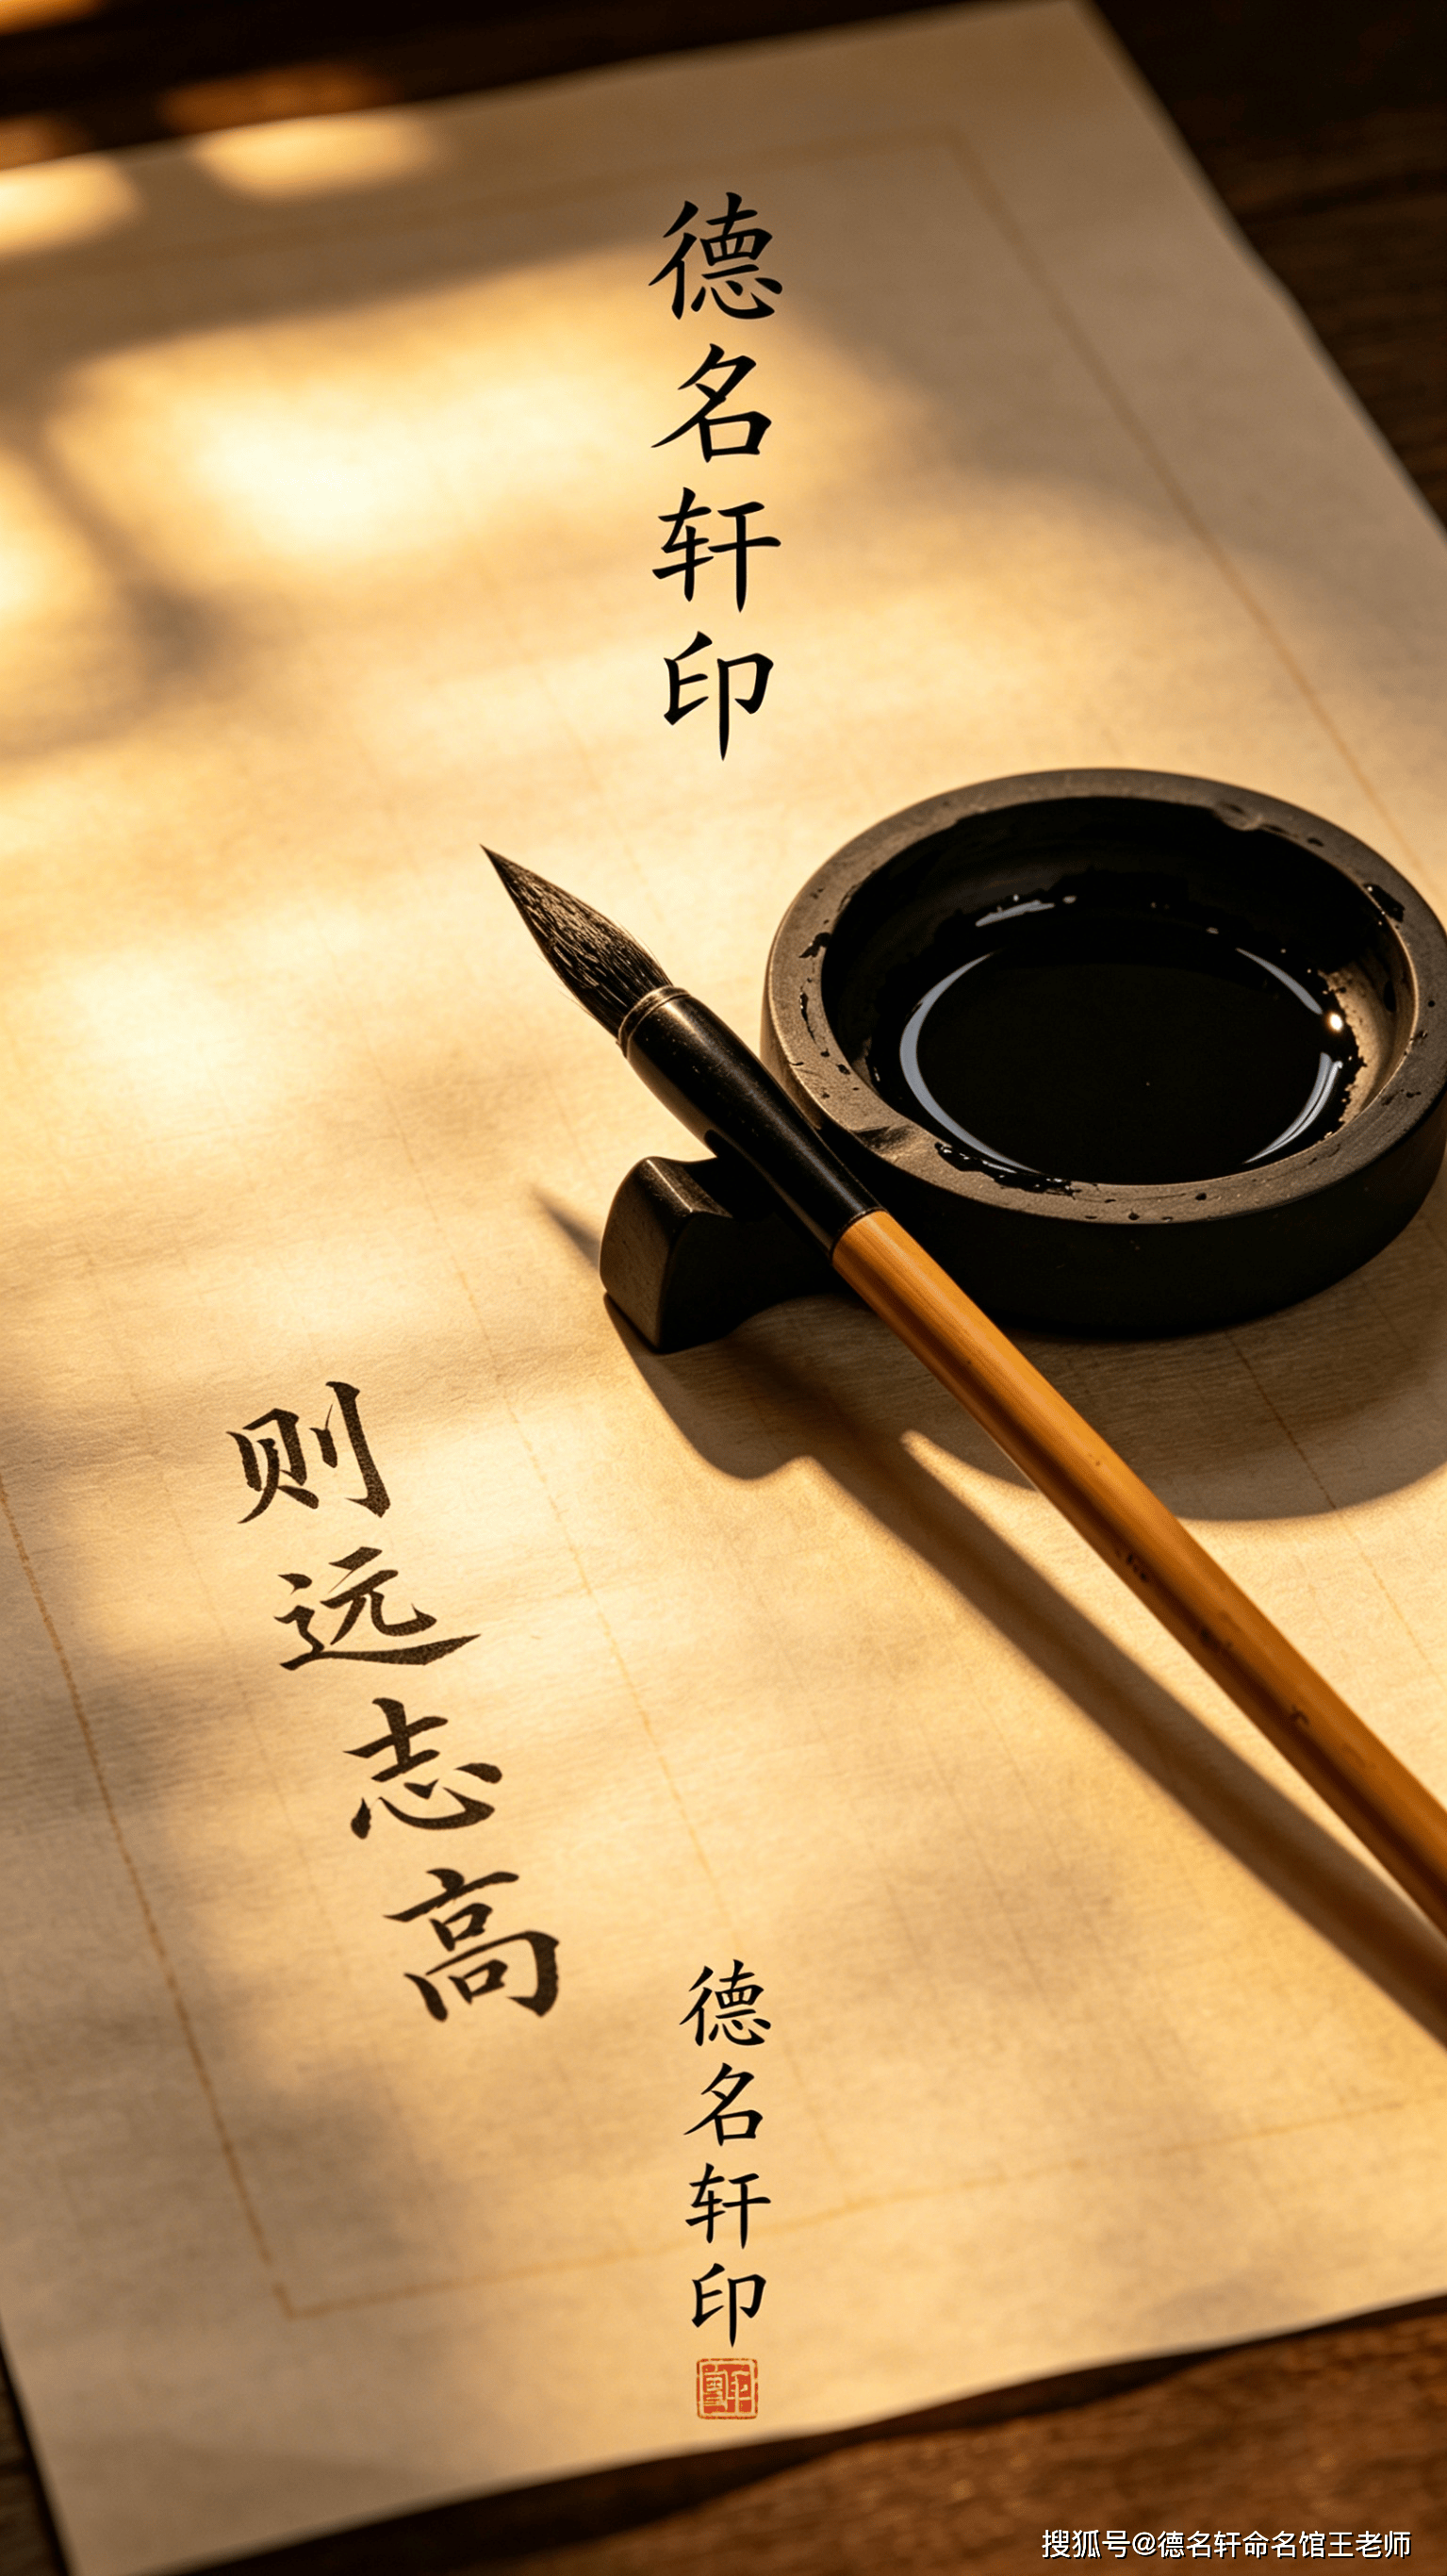 德名轩印
则远志高
德名轩印
搜狐号@德名轩命名馆王老师